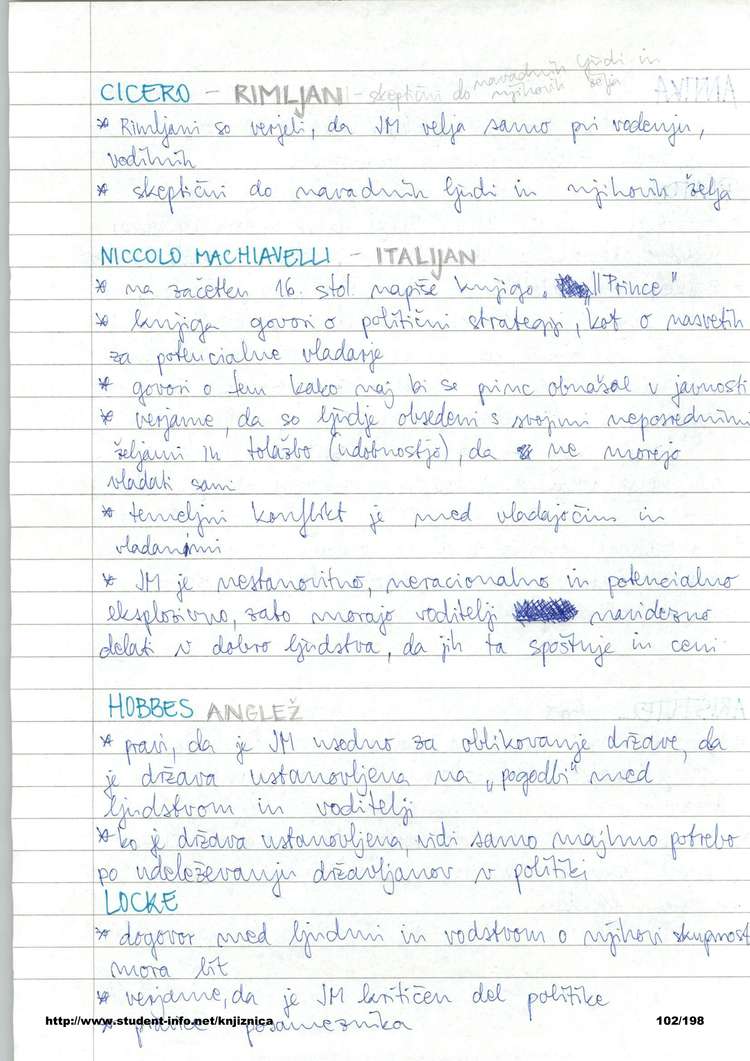 CICERO - RIMLJAN - skeptični do navadnih ljudi in
njihovih želja
* Rimljani so verjeli, da JM velja samo pri vodenju,
vodilnih
* skeptični do navadnih ljudi in njihovih želja
NICCOLO MACHIAVELLI - ITALIJAN
* na začetku 16. stol. napiše knjigo "Prince"
* knjiga govori o politični strategiji, kot o nasvetih
za potencialne vladarje
* govori o tem kako naj bi se princ obnašal v javnosti
* verjame, da so ljudje obsedeni s svojimi neposrednimi
željami in tolažbo (udobnostjo), da ne morejo
vladati sami
* temeljni konflikt je med vladajočim in
vladanimi
* JM je nestanovitno, neracionalno in potencialno
eksplozivno, zato morajo voditelji navidezno
delati v dobro ljudstva, da jih ta spoštuje in ceni
HOBBES ANGLEŽ
* pravi, da je JM usedno za oblikovanje države, da
je država ustanovljena na "pogodbi" med
ljudstvom in voditelji
* ko je država ustanovljena, vidi samo majhno potrebo
po udeleževanju državljanov v politiki
LOCKE
* dogovor med ljudmi in vodstvom o njihovi skupnosti
mora bit
* verjame, da je JM kritičen del politike
* pravice posameznika
http://www.student-info.net/knjiznica
102/198